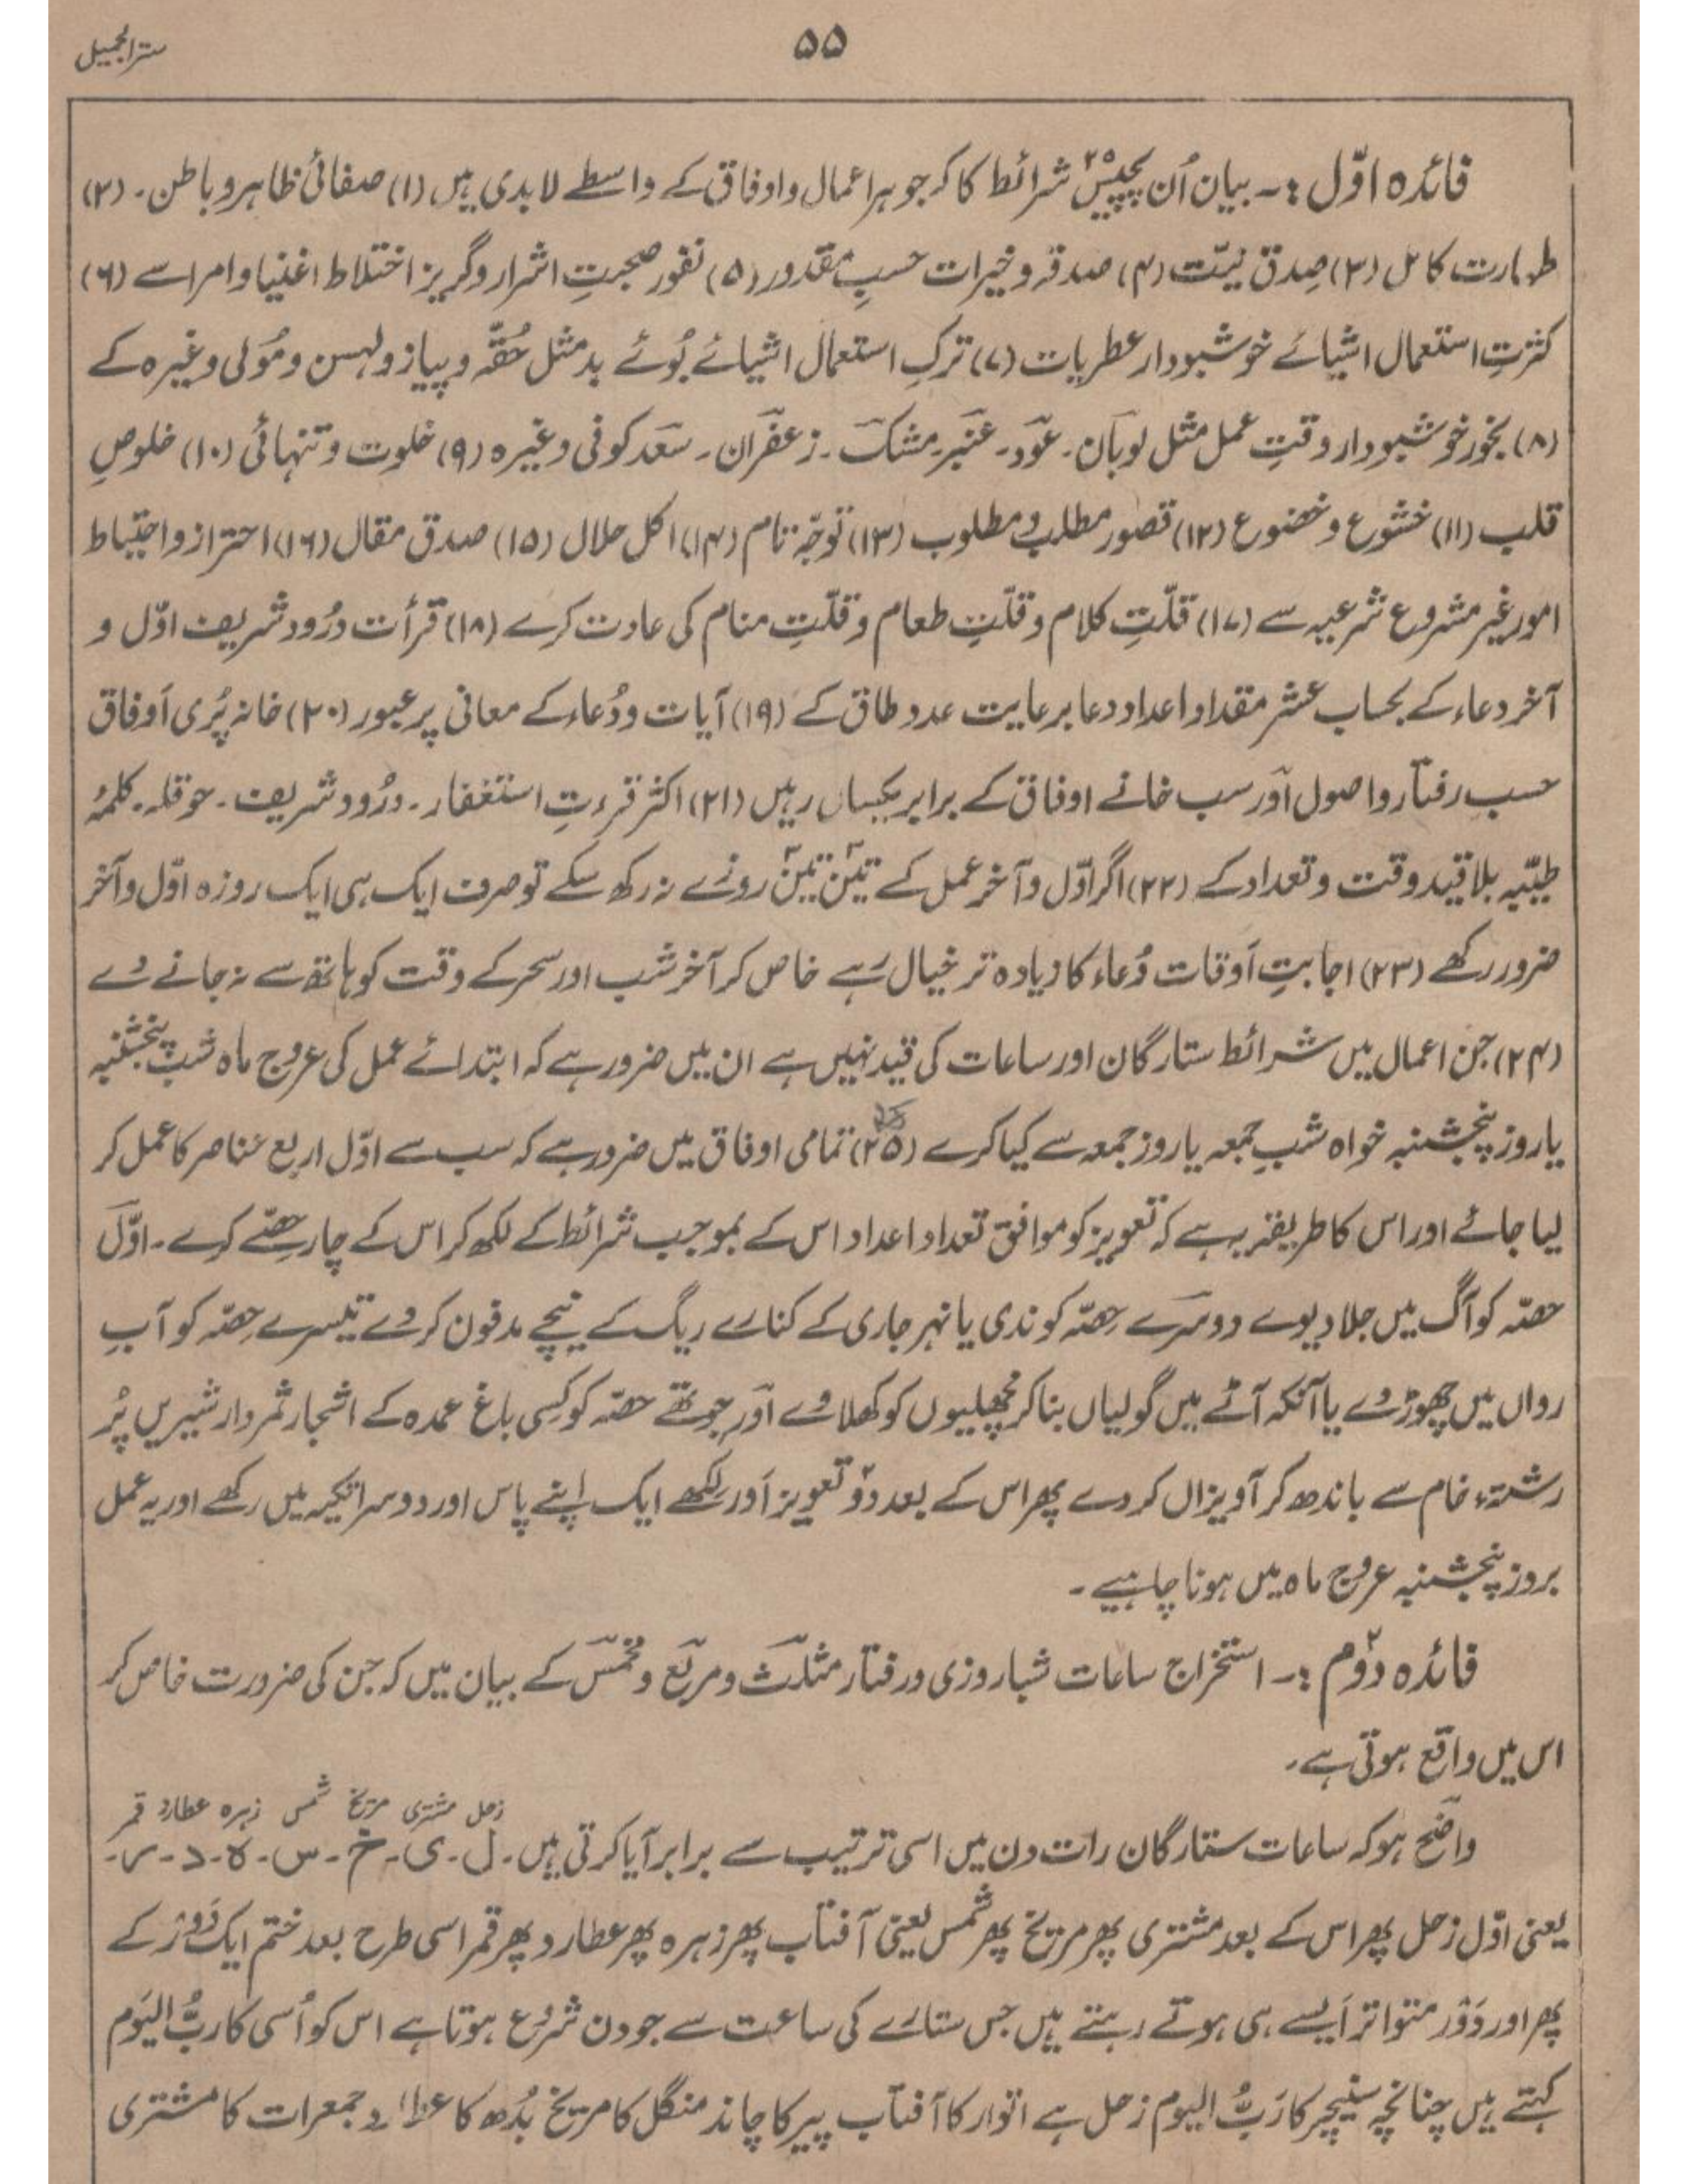 ۵۵
ستر الجمیل
فائدہ اوّل :۔ بیان اُن پچیس ۲۵ شرائط کا کہ جو ہر اعمال و اوفاق کے واسطے لابدی ہیں (۱) صفائی ظاہر و باطن۔ (۲)
طہارت کامل (۳) صِدق نیّت (۴) صدقہ و خیرات حسبِ مقدور (۵) نفور صحبتِ اشرار و گریز اختلاط اغنیا و امرا سے (۶)
کثرتِ استعمال اشیائے خوشبودار عطریات (۷) ترکِ استعمال اشیائے بُوئے بد مثل حُقّہ و پیاز و لہسن و مُولی وغیرہ کے
(۸) بخور خوشبودار وقتِ عمل مثل لوبان۔ عود۔ عنبر۔ مشک۔ زعفران۔ سعد کوفی وغیرہ (۹) خلوت و تنہائی (۱۰) خلوصِ
قلب (۱۱) خشوع و خضوع (۱۲) تصور مطلب و مطلوب (۱۳) توجّہ تام (۱۴) اکل حلال (۱۵) صدق مقال (۱۶) احتراز و احتیاط
امور غیر مشروع شرعیہ سے (۱۷) قلّتِ کلام و قلّتِ طعام و قلّتِ منام کی عادت کرے (۱۸) قرأت درُود شریف اوّل و
آخر دعاء کے بحساب عشر مقدار اعداد دعا برعایت عدد طاق کے (۱۹) آیات و دُعاء کے معانی پر عبور (۲۰) خانہ پُری اَوفاق
حسب رفتار و اصول اور سب خانے اوفاق کے برابر یکساں رہیں (۲۱) اکثر قرءتِ استغفار۔ درُود شریف۔ حوقلہ۔ کلمۂ
طیّبہ بلا قید وقت و تعداد کے (۲۲) اگر اوّل و آخر عمل کے تین تین روزے نہ رکھ سکے تو صرف ایک ہی ایک روزہ اوّل و آخر
ضرور رکھے (۲۳) اجابتِ اَوقات دُعاء کا زیادہ تر خیال رہے خاص کر آخر شب اور سحر کے وقت کو ہاتھ سے نہ جانے دے
(۲۴) جن اعمال میں شرائط ستارگان اور ساعات کی قید نہیں ہے ان میں ضرور ہے کہ ابتدائے عمل کی عروج ماہ شبِ پنجشنبہ
یا روز پنجشنبہ خواہ شبِ جمعہ یا روز جمعہ سے کیا کرے (۲۵) تمامی اوفاق میں ضرور ہے کہ سب سے اوّل اربع عناصر کا عمل کر
لیا جائے اور اس کا طریقہ یہ ہے کہ تعویز کو موافق تعداد اعداد اس کے بموجب شرائط کے لکھ کر اس کے چار حصّے کرے۔ اوّل
حصّہ کو آگ میں جلا دیوے دوسرے حِصّہ کو ندی یا نہر جاری کے کنارے ریگ کے نیچے مدفون کر دے تیسرے حِصّہ کو آبِ
رواں میں چھوڑ دے یا آنکہ آٹے میں گولیاں بنا کر مچھلیوں کو کھلا دے اور چوتھے حصّہ کو کسِی باغ عمدہ کے اشجار ثمردار شیریں پر
رشتۂ خام سے باندھ کر آویزاں کر دے پھر اس کے بعد دو تعویز اَور لکھے ایک اپنے پاس اور دوسرا تکیہ میں رکھے اور یہ عمل
بروز پنجشنبہ عروج ماہ میں ہونا چاہیے۔
فائدہ دوم :۔ استخراج ساعات شباروزی و رفتار مثلث و مربع و مخمس کے بیان میں کہ جن کی ضرورت خاص کر
اس میں واقع ہوتی ہے۔
زحل مشتری مریخ شمس زہرہ عطارد قمر
واضح ہو کہ ساعات ستارگان رات دن میں اسی ترتیب سے برابر آیا کرتی ہیں۔ ل۔ ی۔ خ۔ س۔ ہ۔ د۔ ر۔
یعنی اوّل زحل پھر اس کے بعد مشتری پھر مریخ پھر شمس یعنی آفتاب پھر زہرہ پھر عطارد پھر قمر اسی طرح بعد ختم ایک دَور کے
پھر اور دَور متواتر اَیسے ہی ہوتے رہتے ہیں جس ستارے کی ساعت سے جو دن شروع ہوتا ہے اس کو اُسی کا ربُّ الیَوم
کہتے ہیں چنانچہ سنیچر کا رَبُّ الیوم زحل ہے اتوار کا آفتاب پیر کا چاند منگل کا مریخ بُدھ کا عطارد جمعرات کا مشتری